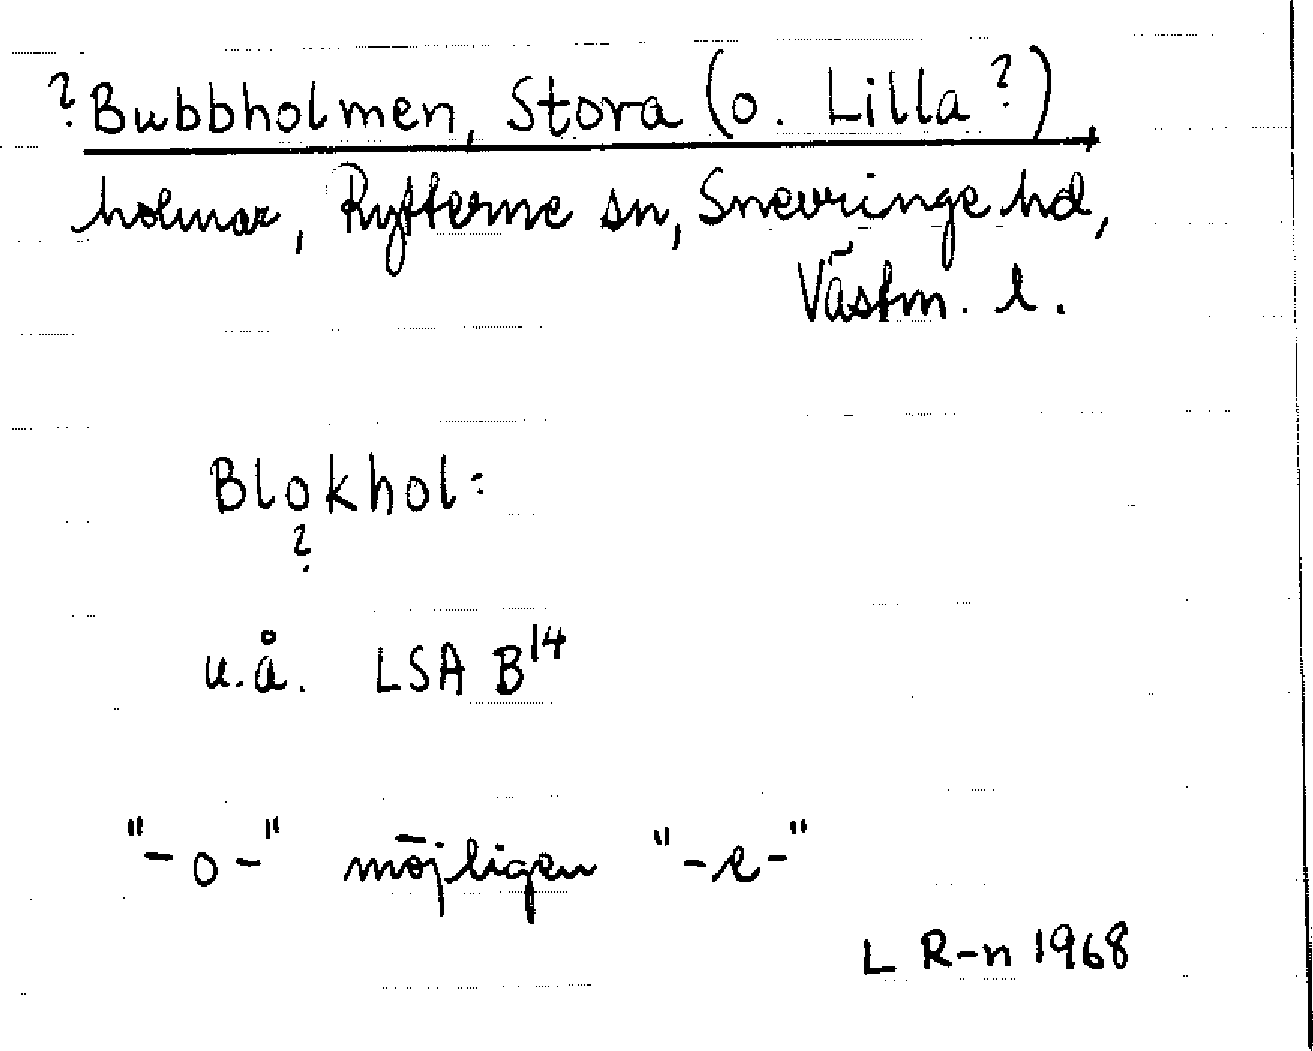 ? Bubbholmen, Stora (o. Lilla ?)
holmar, Rytterne sn, Snevringe hd,
Västm. l.
Blokhol=
?
u.å. LSA B14
"-o-" möjligen "-e-"
L R-n 1968